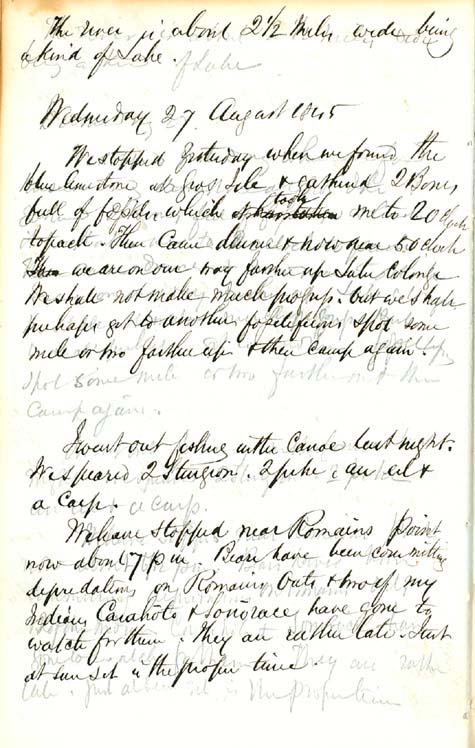 The river is about 2½ Miles wide being
a kind of Lake.
Wednesday 27 August 1845
We stopped yesterday when we found the
blue limestone at Gros Isle & gathered 2 Boxes
full of fossils which took me to 2 O Clock
to pack. Then Came dinner & now near 5 O Clock
we are on our way farther up Lake Colonge
We shall not make much progress. but we shall
perhaps get to another fossiliferous spot some
mile or two farther up & then Camp again.
spot some mile or two farther on & then
Camp again.
I went out fishing in the Canoe last night.
We speared 2 Sturgeon. 2 pike & an eel &
a Carp. a carp.
We have stopped near Romains Point
now about 7 p m. Bears have been committing
depredations on Romains Oats & two of my
Indians have gone to
watch for them. They are rather late. Just
at sun set is the proper time
They are rather
late. Just at sun set is the proper time